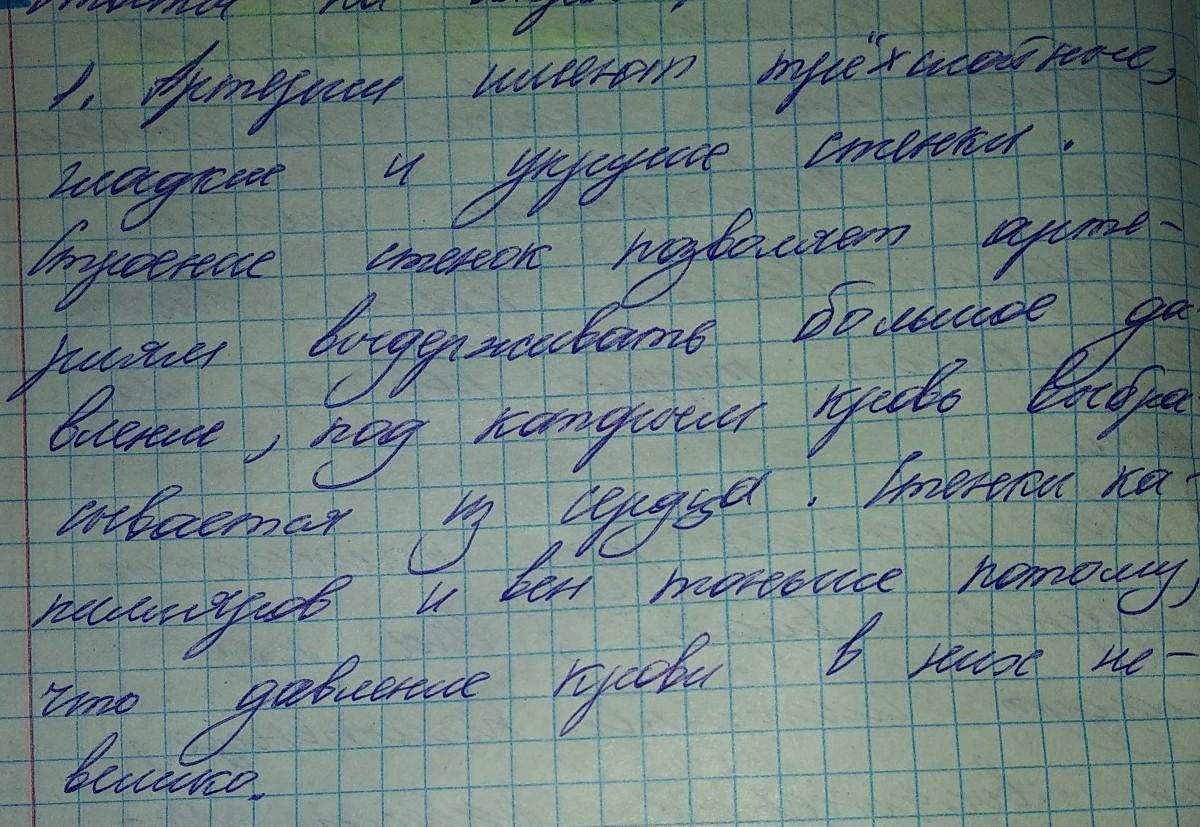 на
1. Артерии имеют трёхслойные,
гладкие и упругие стенки.
Строение стенок позволяет арте-
риям выдерживать большое да
вление, под которым кровь выбра
сывается из сердца. Стенки ка-
пилляров и вен тоньше потому,
что давление крови в них не-
велико.